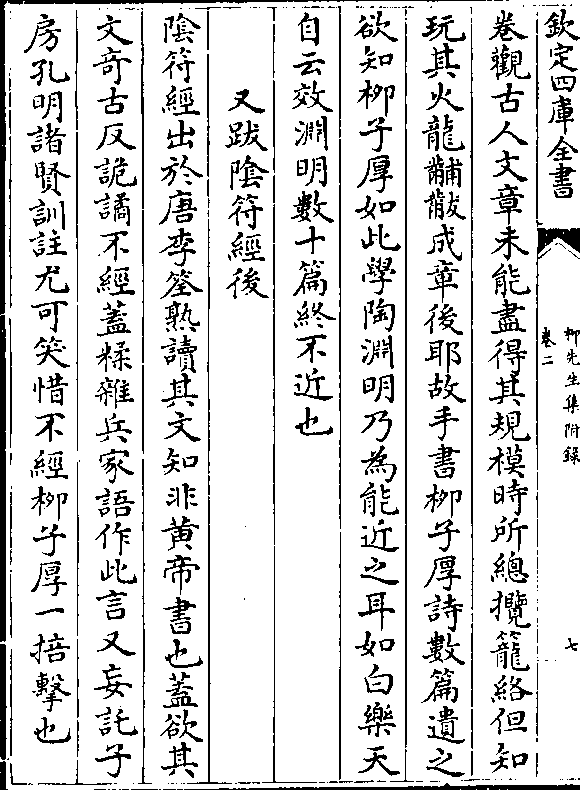 欽定四庫全書
柳先生集附錄
卷二
七
卷觀古人文章未能盡得其規模時所總攬籠絡但知
玩其火龍黼黻成章後耶故手書柳子厚詩數篇遺之
欲知柳子厚如此學陶淵明乃為能近之耳如白樂天
自云效淵明數十篇終不近也
又跋陰符經後
陰符經出於唐李筌熟讀其文知非黄帝書也蓋欲其
文奇古反詭譎不經蓋糅雜兵家語作此言又妄託子
房孔明諸賢訓註尤可笑惜不經柳子厚一掊擊也